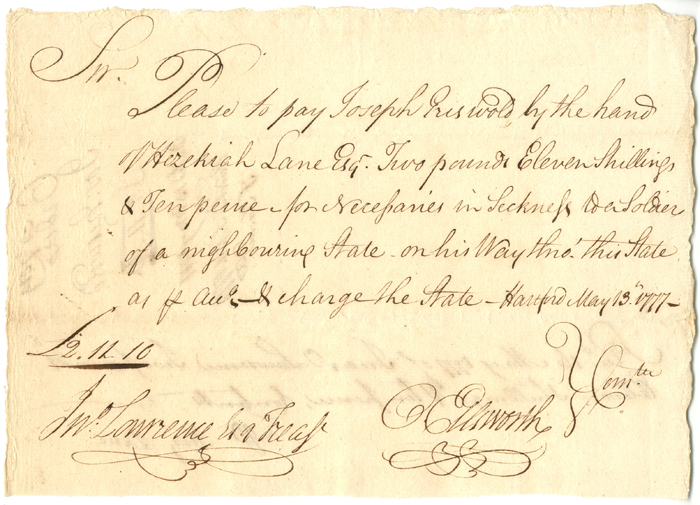 Sir.
Please to pay Joseph Griswold, by the hand
of Hezekiah Lane Esqr. Two pounds Eleven Shillings
& Ten pence - for Necessaries in Sickness to a Soldier
of a nighbouring State - on his Way thro' this State
as pr Acco. - & charge the State - Harford May 13th. 1777 -
£2. 11. 10
Jno. Lawrence Esqr Treasr
O Ellsworth } Comtee